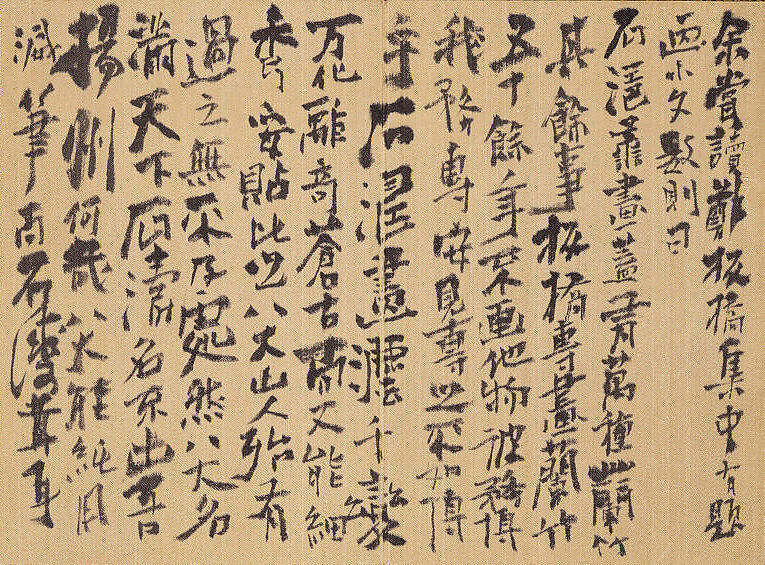 余嘗讀鄭板橋集中有題
画小文數則曰
石濤善畫蓋有萬種蘭竹
其餘事板橋專畫蘭竹
五十餘年不画他物彼務博
我務專安見專之不如博
乎石濤畫灋千變
万化離奇蒼古而又能細
秀妥貼比之八大山人殆有
過之無不及處然八大名
滿天下石濤名不出吾
揚州何哉八大能純用
減筆而石濤茸耳